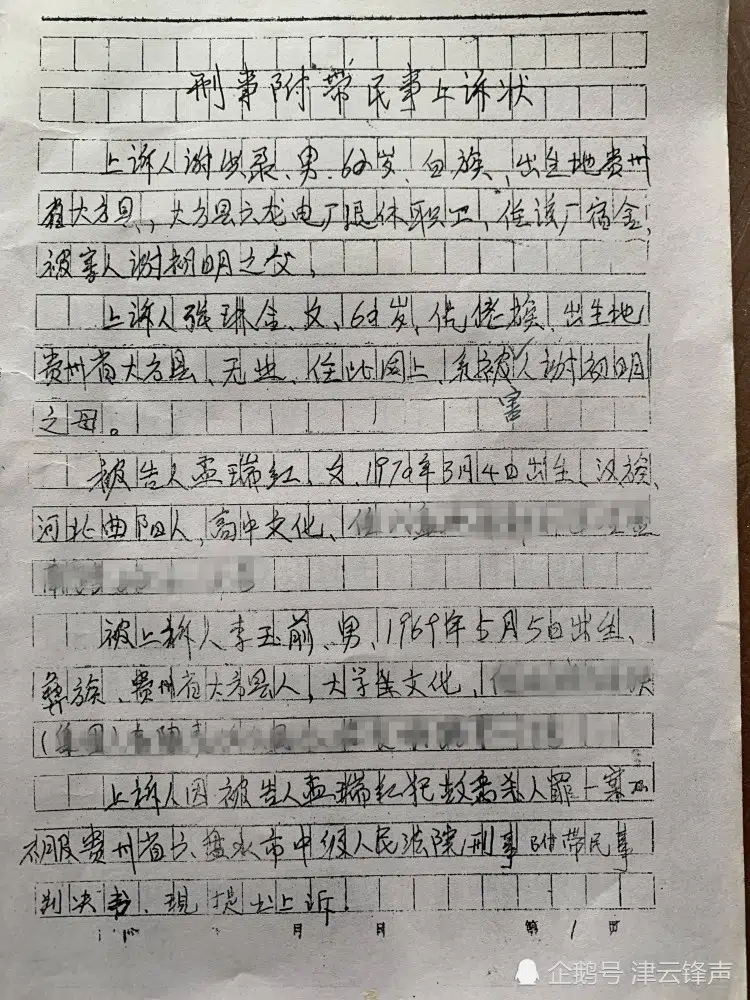 刑事附带民事上诉状
上诉人谢洪录、男、62岁、白族、出生地贵州
省大方县、大方县六龙电厂退休职工、住该厂宿舍,
被害人谢初明之父。
上诉人张琳金、女、62岁、仡佬族、出生地
贵州省大方县、无业、住址同上、系被害人谢初明
之母。
被告人孟瑞红、女、1970年3月4日出生、汉族、
河北曲阳人、高中文化、住
被上诉人李玉前、男、1969年5月5日出生、
彝族、贵州省大方县人、大学文化、
上诉人因被告人孟瑞红犯故意杀人罪一案
不服贵州省六盘水市中级人民法院刑事附带民事
判决书、现提出上诉。
月 日 第1页
企鹅号 津云锋声